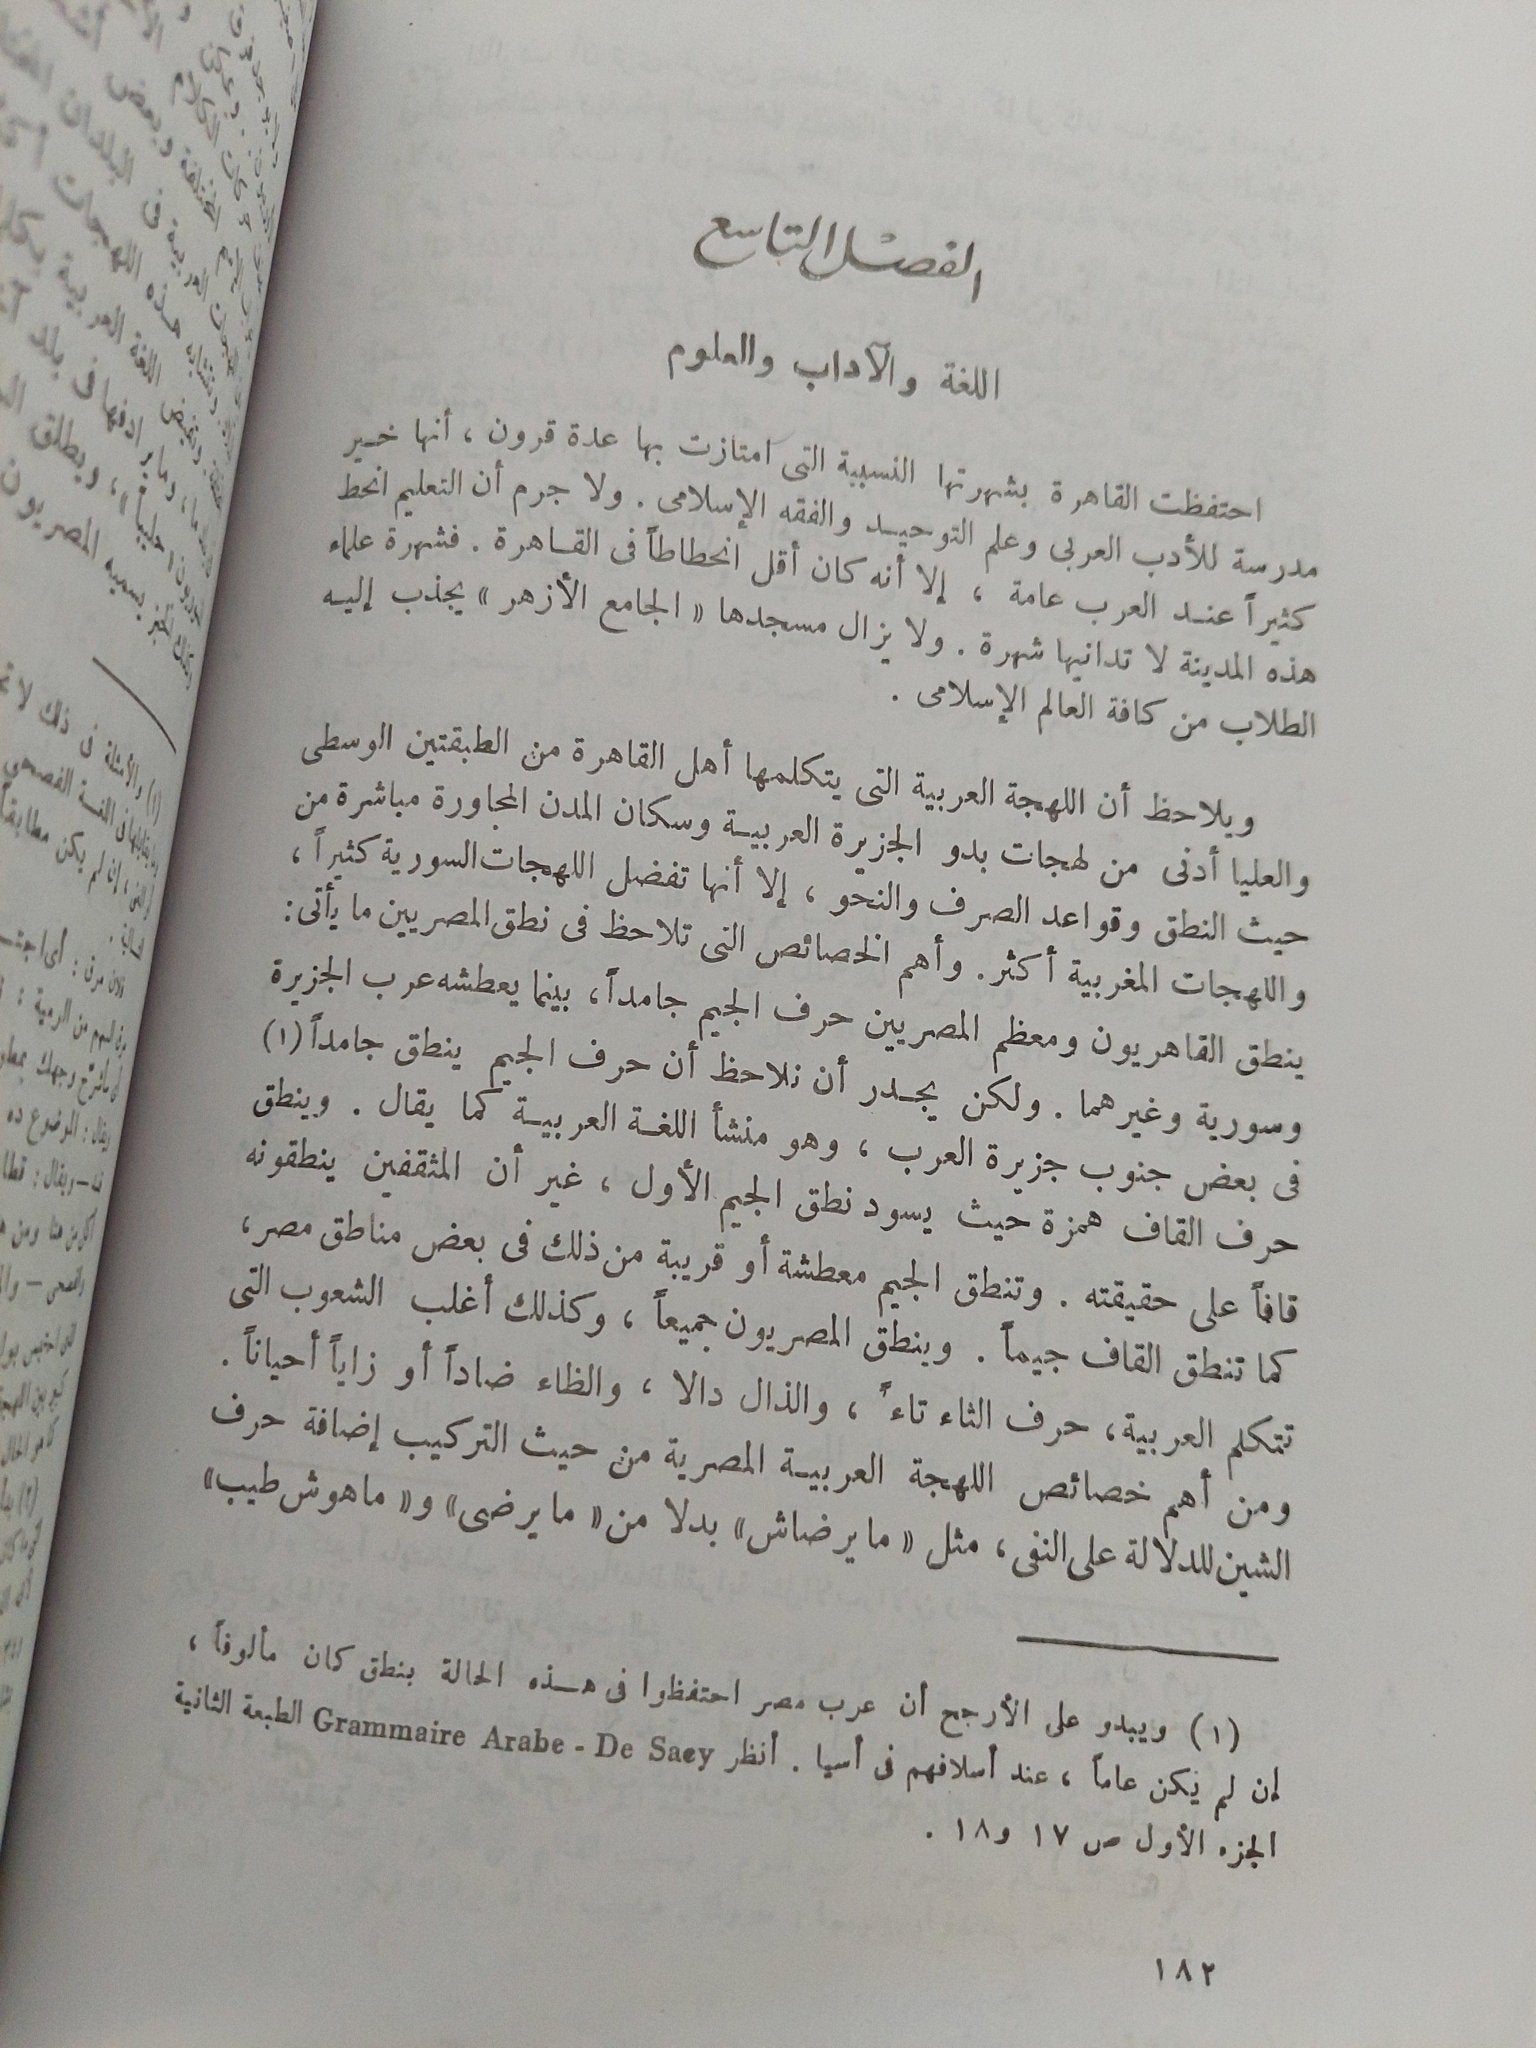 الفصل التاسع
اللغة والآداب والعلوم
احتفظت القاهرة بشهرتها النسبية التى امتازت بها عدة قرون ، أنها خير
مدرسة للأدب العربى وعلم التوحيد والفقه الإسلامى . ولا جرم أن التعليم انحط
كثيراً عند العرب عامة ، إلا أنه كان أقل انحطاطاً فى القاهرة . فشهرة علماء
هذه المدينة لا تدانيها شهرة . ولا يزال مسجدها « الجامع الأزهر » يجذب إليه
الطلاب من كافة العالم الإسلامى .
ويلاحظ أن اللهجة العربية التى يتكلمها أهل القاهرة من الطبقتين الوسطى
والعليا أدنى من لهجات بدو الجزيرة العربية وسكان المدن المجاورة مباشرة من
حيث النطق وقواعد الصرف والنحو ، إلا أنها تفضل اللهجات السورية كثيراً ،
واللهجات المغربية أكثر . وأهم الخصائص التى تلاحظ فى نطق المصريين ما يأتى :
ينطق القاهريون ومعظم المصريين حرف الجيم جامداً ، بينما يعطشه عرب الجزيرة
وسورية وغيرهما . ولكن يجدر أن نلاحظ أن حرف الجيم ينطق جامداً (١)
فى بعض جنوب جزيرة العرب ، وهو منشأ اللغة العربية كما يقال . وينطق
حرف القاف همزة حيث يسود نطق الجيم الأول ، غير أن المثقفين ينطقونه
قافاً على حقيقته . وتنطق الجيم معطشة أو قريبة من ذلك فى بعض مناطق مصر ،
كما تنطق القاف جيماً . وينطق المصريون جميعاً ، وكذلك أغلب الشعوب التى
تتكلم العربية ، حرف الثاء تاءً ، والذال دالا ، والظاء ضاداً أو زاياً أحياناً .
ومن أهم خصائص اللهجة العربية المصرية من حيث التركيب إضافة حرف
الشين للدلالة على النفى ، مثل « ما يرضاش » بدلا من « ما يرضى » و « ماهوش طيب »
(١) ويبدو على الأرجح أن عرب مصر احتفظوا فى هذه الحالة بنطق كان مألوفاً ،
إن لم يكن عاماً ، عند أسلافهم فى أسيا . أنظر Grammaire Arabe - De Saey الطبعة الثانية
الجزء الأول ص ١٧ و١٨ .
١٨٢